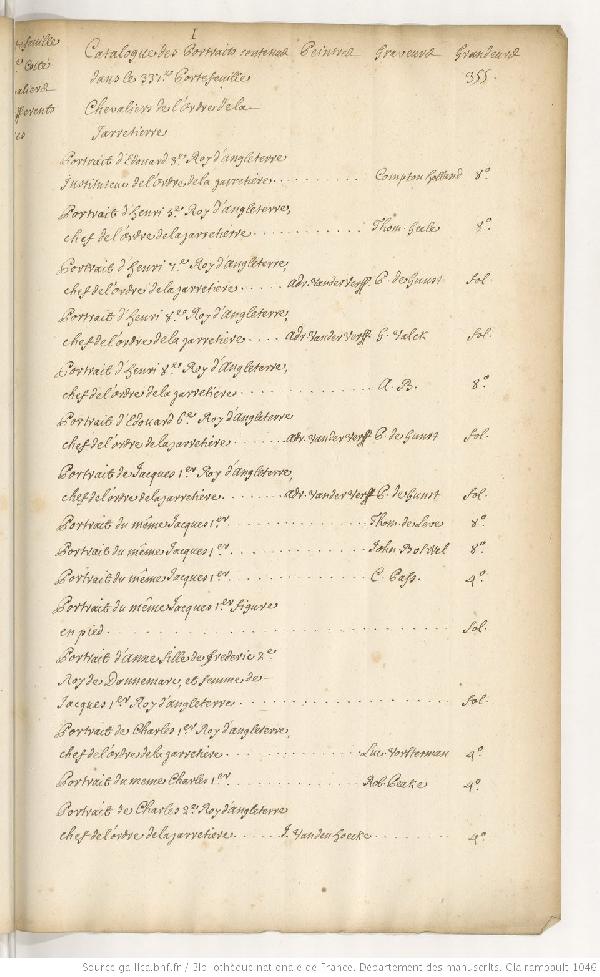 1
Catalogue des Portraits contenus Peintres Graveurs Grandeurs
dans le 337.e Portefeuille 355.
Chevaliers de l'ordre de la
Jarretierre
Portrait d'Edouard 3.e Roy d'angleterre
Instituteur de l'ordre de la jarretiére . . . . . . . . Compton holland 8.o
Portrait d'henri 5.e Roy d'angleterre,
chef de l'ordre de la jarretierre . . . . . . . . . . . . Thom. hele 8.o
Portrait d'henri 7.e Roy d'Angleterre,
chef de l'ordre de la jarretiere . . . . . Adr. Vander Verff P. de Gunst fol.
Portrait d'henri 8.e Roy d'Angleterre,
chef de l'ordre de la jarretiere . . . . Adr Vander Verff G. Valck fol.
Portrait d'henri 8.e Roy d'Angleterre,
chef de l'ordre de la jarretiere . . . . . . . . . . . . A. B. 8.o
Portrait d'Edouard 6.e Roy d'Angleterre
chef de l'ordre de la jarretiére . . . . . Adr. Vander Verff P. de Gunst fol.
Portrait de Jacques 1.er Roy d'angleterre,
chef de l'ordre de la jarretére . . . . . . Adr. Vander Verff P. de Gunst fol.
Portrait du même Jacques 1.er . . . . . . . . . . Thom. de 8.o
Portrait du même Jacques 1.er . . . . . . . . . . John 8.o
Portrait du même Jacques 1.er . . . . . . . . . . C. Pass. 4.o
Portrait du même Jacques 1.er figure
en pied . . . . . . . . . . . . . . . . . . . . . . . . fol.
Portrait d'anne fille de frederic 2.e
Roy de Dannemarc, et femme de
Jacques 1.er Roy d'angleterre . . . . . . . . . . . . . . . fol.
Portrait de Charles 1.er Roy d'angleterre,
chef de l'ordre de la jarretiére . . . . . . . . . . Luc. Vorsterman 4.o
Portrait du meme Charles 1.er . . . . . . . . . . Rob. Peake 4.o
Portrait de Charles 2.e Roy d'angleterre
chef de l'ordre de la jarretiere . . . . . J. Vanden hoecke . . . . . . . . 4.o
Source gallica.bnf.fr / Bibliothèque nationale de France. Département des manuscrits. Clairambault 1046